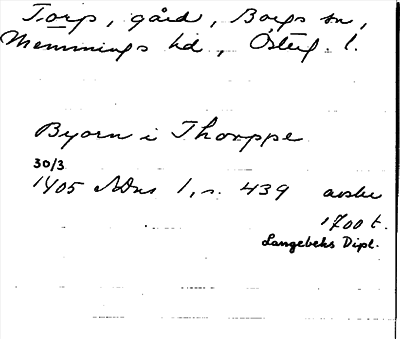 Torp, gård, Borgs sn,
Memmings hd, Österg. l.
Byorn i Thorppe
30/3
1405 NDns 1, s. 439 avskr
1700 t.
Langebeks Dipl.